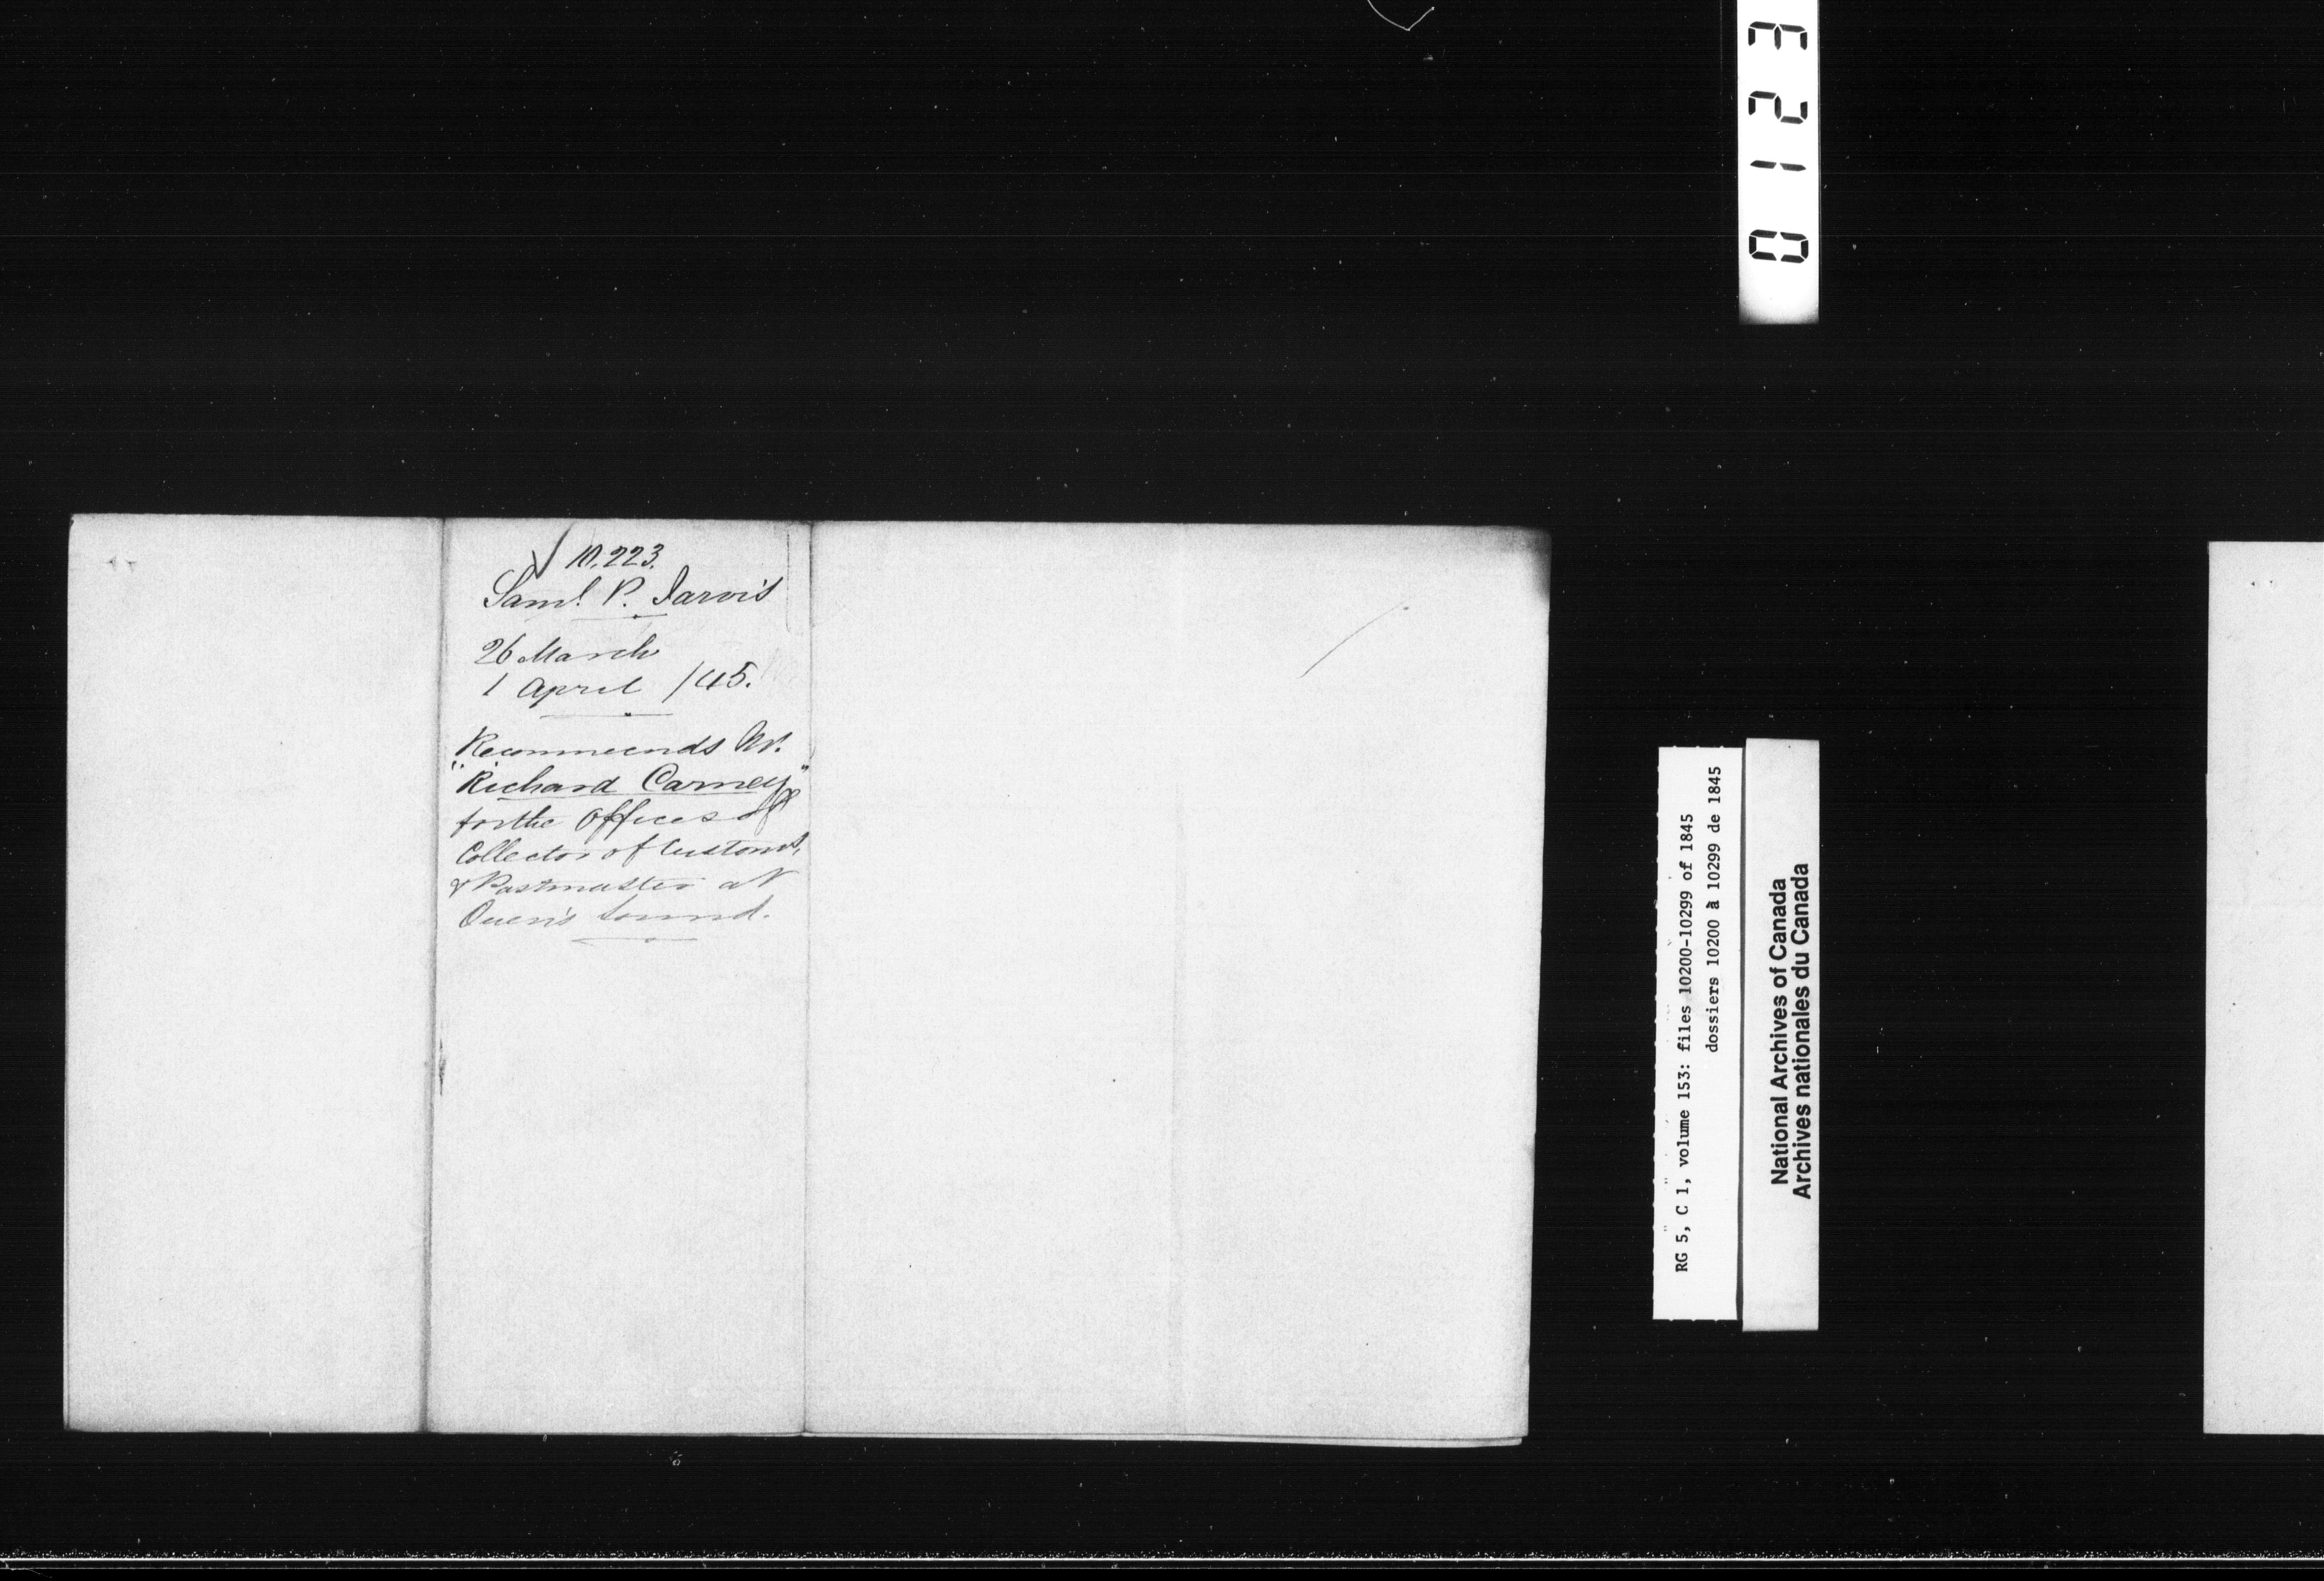 10,223.
Saml. P. Jarvis
26 March
1 April /45.
Recommends Mr.
"Richard Carney"
for the Offices of
Collector of Customs,
& Postmaster at
Owen's Sound.
0123
RG 5, C 1, volume 153: files 10200-10299 of 1845
dossiers 10200 à 10299 de 1845
National Archives of Canada
Archives nationales du Canada